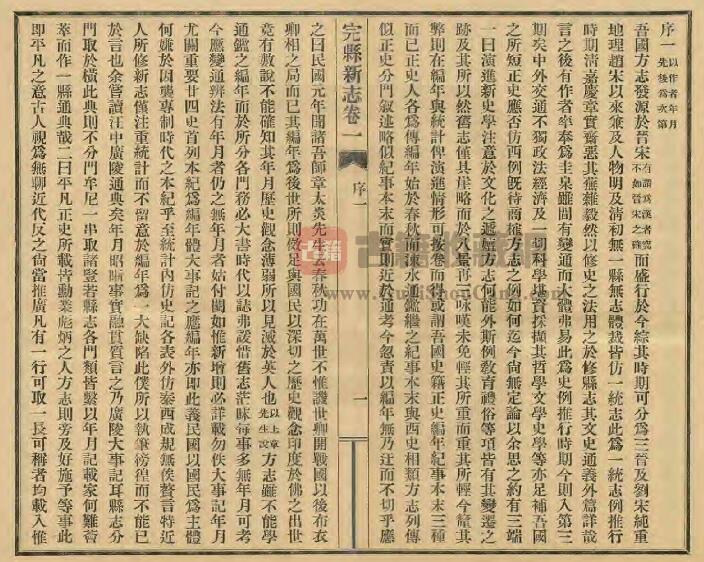 序一以作者年月先後為次第
吾國方志發源於晉宋有謂為漢者究不如晉宋之確而盛行於今綜其時期可分為三晉及劉宋純重
地理趙宋以來兼及人物明及清初無一縣無志體裁皆仿一統志此為一統志例推行
時期清嘉慶章實齋惡其蕪雜毅然以修史之法用之於修縣志其文史通義外篇詳哉
言之後有作者率奉為圭臬雖間有變通而大體弗易此為史例推行時期今則入第三
期矣中外交通不獨政法經濟及一切科學堪資採擷其哲學文學史學等亦足補吾國
之所短正史應否仿西例既待商榷方志之例如何迄今尚無定論以余思之約有三端
一曰演進新史學注意於文化之遞嬗方志何能外斯例教育禮俗等項皆有其變遷之
跡及其所以然舊志僅具崖略而於八景再三咏嘆未免輕其所重而重其所輕今釐其
弊則在編年與統計俾演進情形可按卷而得或謂吾國史籍正史編年紀事本末三種
而已正史人各為傳編年始於春秋而涑水通鑑繼之紀事本末與西史相類方志列傳
似正史分門叙述略似紀事本末而實則近於通考今忽責以編年無乃迂而不切乎應
完縣新志卷一
序一
一
之曰民國元年聞諸吾師章太炎先生云春秋功在萬世不惟譏世卿開戰國以後布衣
卿相之局而已其編年為後世所則傚足與國民以深切之歷史觀念印度於佛之出世
竟有數說不能確知其年月歷史觀念薄弱所以見滅於英人也以上章先生說方志雖不能學
通鑑之編年而於所分各門務必大書時代以誌弗諼惜舊志茫昧每事多無年月可考
今應變通辦法有年月者仍之無年月者始付闕如惟新增則必詳載勿佚大事記年月
尤關重要廿四史首列本紀為編年體大事記之應編年亦即此義民國以國民為主體
何嫌於因襲專制時代之本紀乎至統計內仿史記各表外仿泰西成規無俟贅言特近
人所修新志僅注重統計而不留意於編年為一大缺陷此僕所以執筆徬徨而不能已
於言也余嘗讀汪中廣陵通典矣年月昭晰事實融貫質言之乃廣陵大事記耳縣志分
門取於橫此典則不分門牟尼一串取諸豎若縣志各門類皆繫以年月記載家何難薈
萃而作一縣通典哉二曰平凡正史所載皆勳業彪炳之人方志則旁及好施予等事此
即平凡之意古人視為無聊近代反之尚當推廣凡有一行可取一長可稱者均載入惟
古籍
www.GuJiShouCang.com